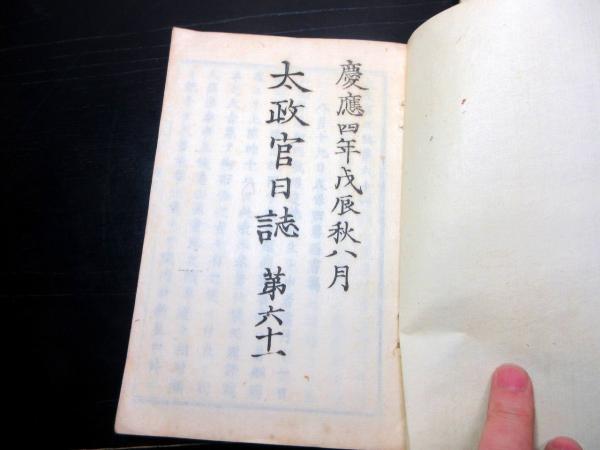 慶應四年戊辰秋八月
太政官日誌 第六十一